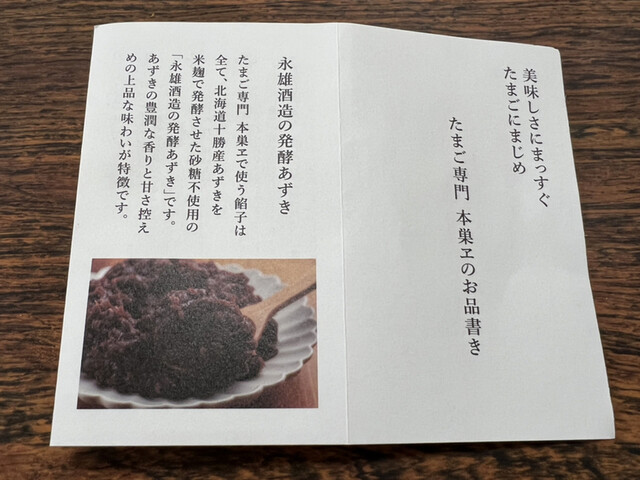 美味しさにまっすぐ
たまごにまじめ
たまご専門 本巣ヱのお品書き
永雄酒造の発酵あずき
たまご専門 本巣ヱで使う餡子は
全て、北海道十勝産あずきを
米麹で発酵させた砂糖不使用の
「永雄酒造の発酵あずき」です。
あずきの豊潤な香りと甘さ控え
めの上品な味わいが特徴です。